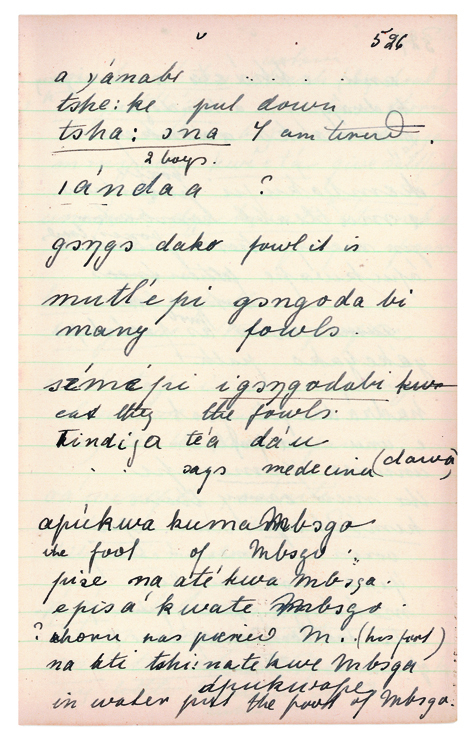 526
a yánabi
tshe:ke put down
tsha: ɔna I am tired.
2 boys.
ıándaa ?
gɔŋgɔ dako fowl it is
mutl'épi gɔŋgoda bi
many fowls.
sémépi igɔŋgodabi
eat they the fowls.
téa dáu
says medecine (dawa)
apúkwa kuma Mbɔgo
the foot of Mbɔgo.
pize na até kwa Mbɔga.
episá kwate Mbɔgo.
? thorn has pierced M. (his foot)
na ati tshi:natekwe Mbɔga
apukwape
in water put the foot of Mbɔgo.